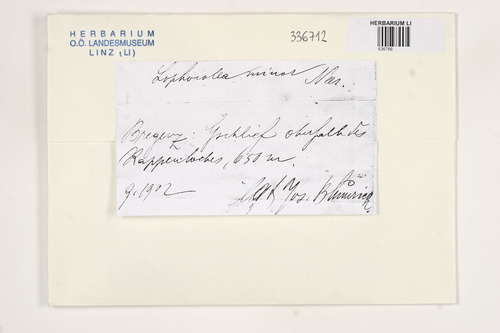 HERBARIUM
O.Ö. LANDESMUSEUM
LINZ (LI)
336712
HERBARIUM LI
Lophocolea minor Nees.
Bregenz: Gschlief oberhalb des
Rappenloches, 650 m.
9.1902 Jos. Blumrich